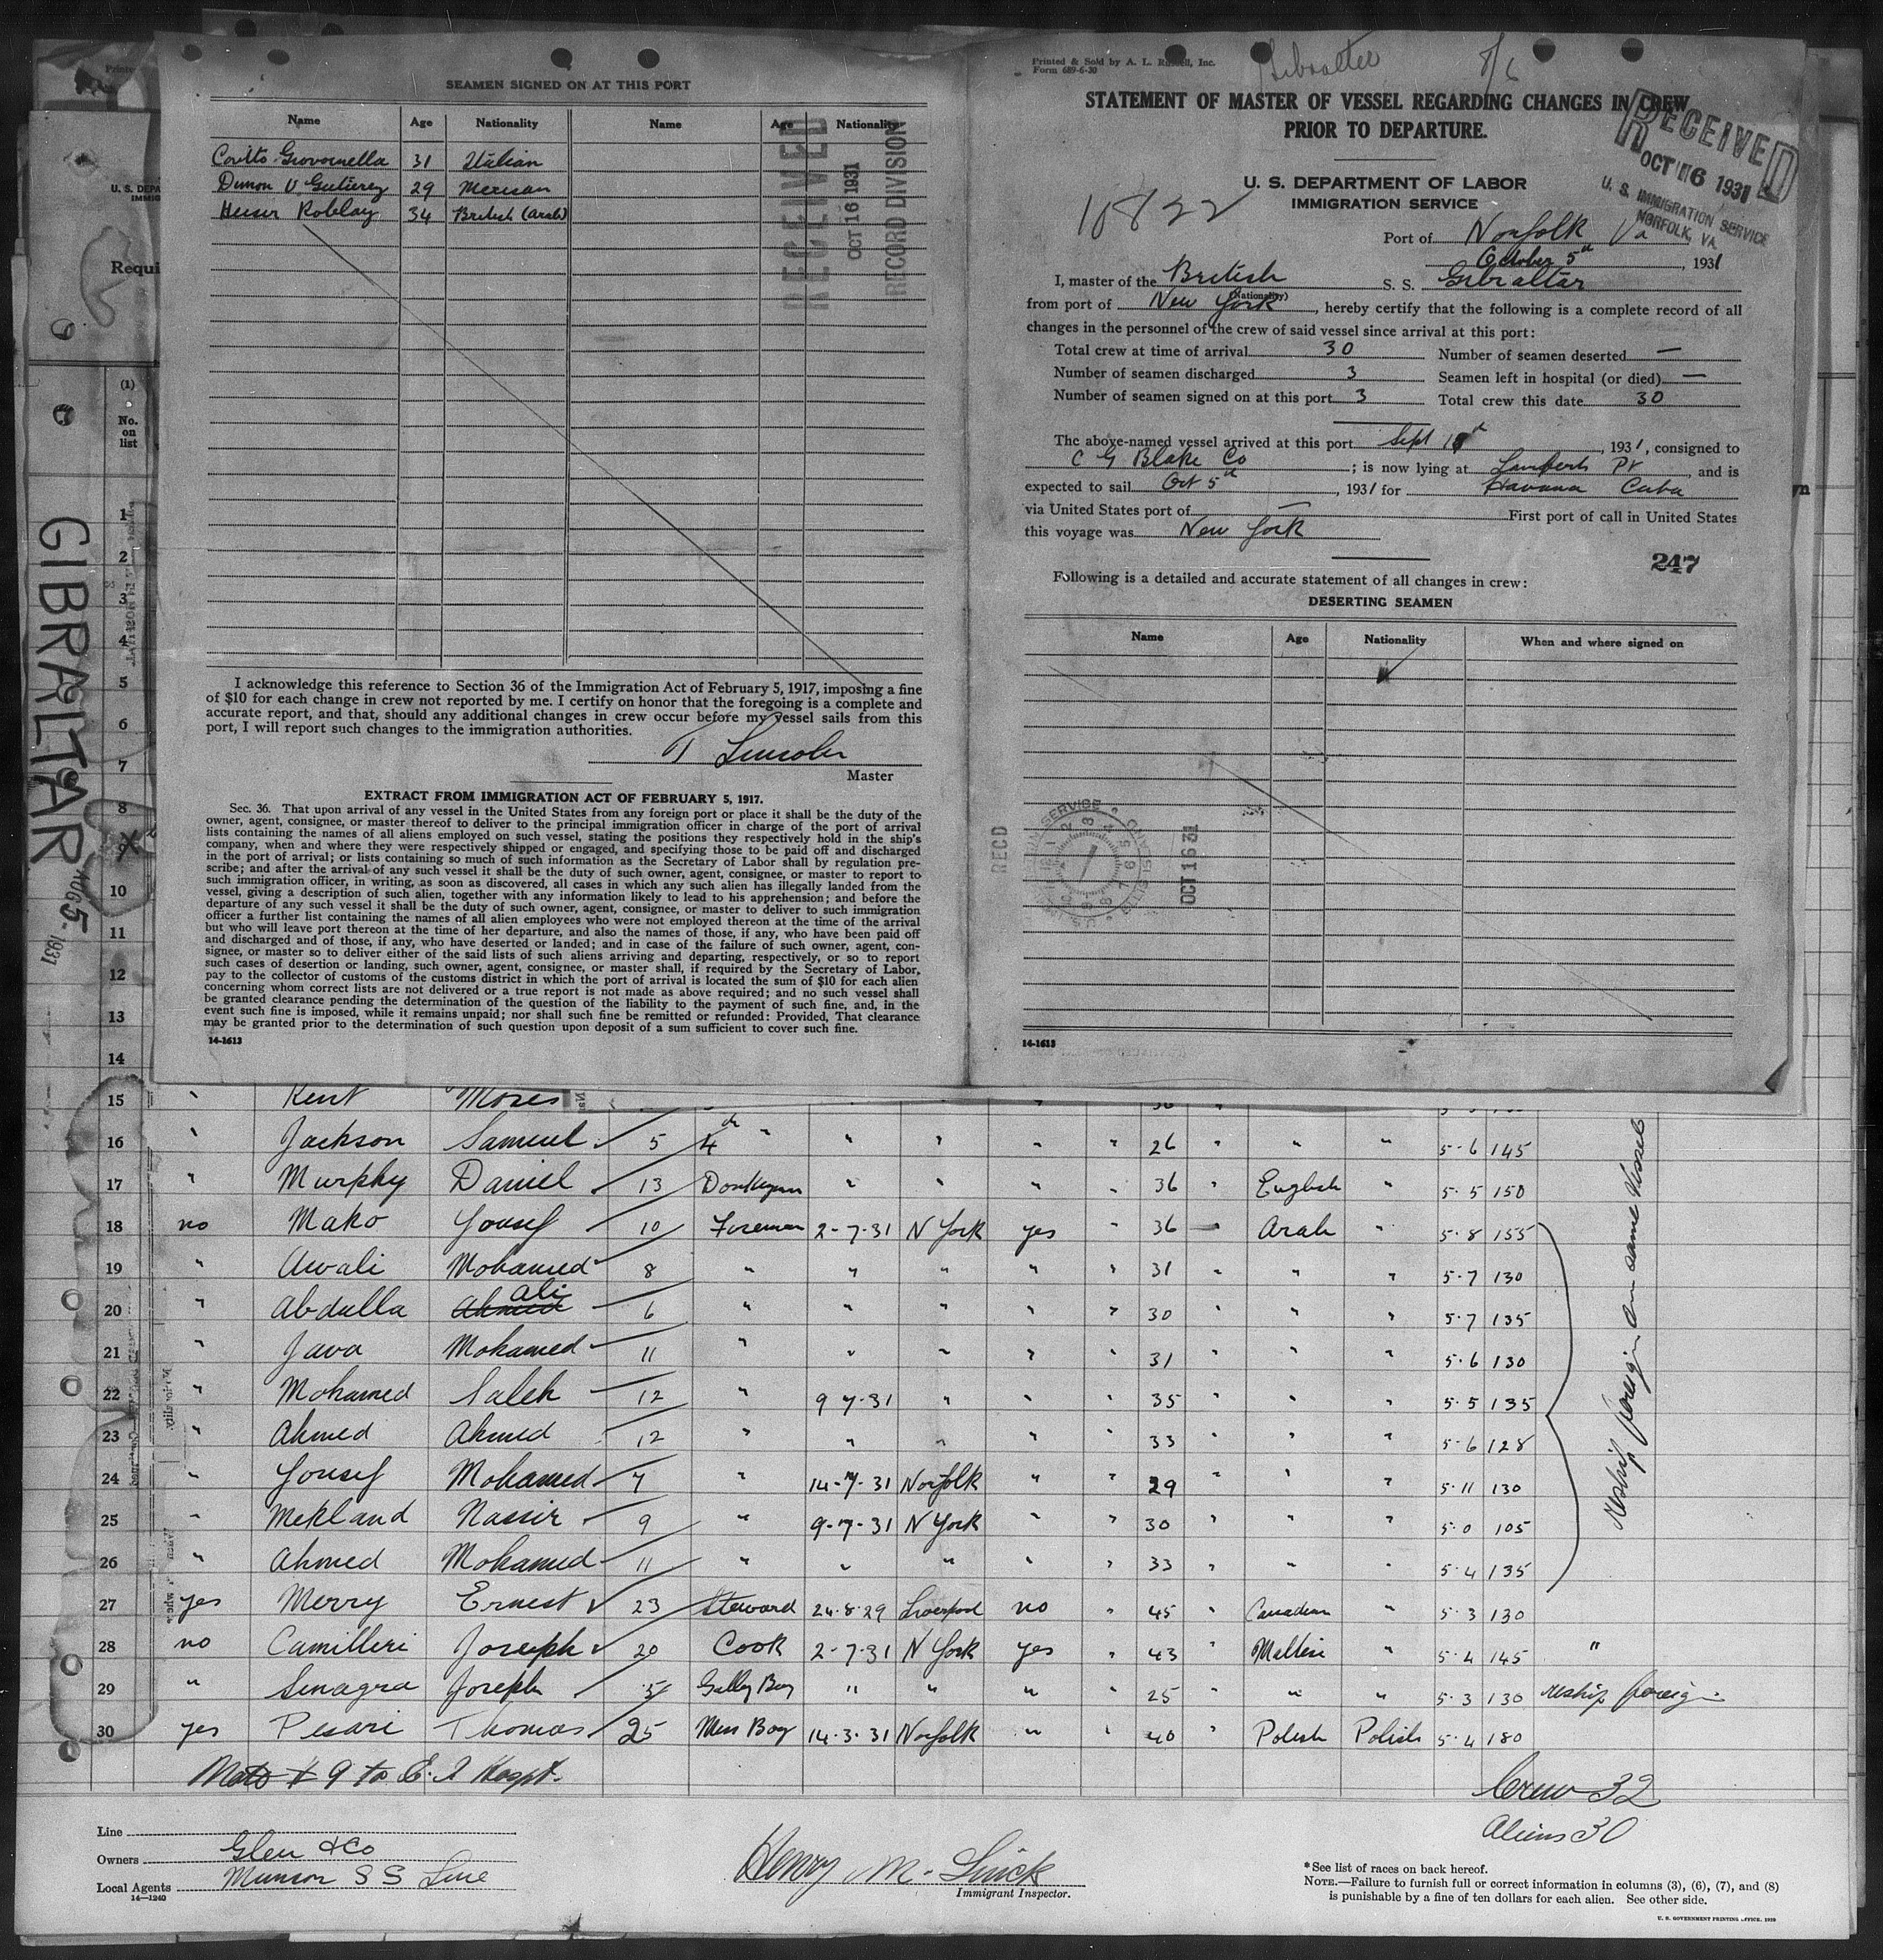 SEAMEN SIGNED ON AT THIS PORT
Name Age Nationality Name Age Nationality
31 Italian
Gutierez 29 Mexican
34 British (Arab)
RECEIVED
OCT 16 1931
RECORD DIVISION
I acknowledge this reference to Section 36 of the Immigration Act of February 5, 1917, imposing a fine
of $10 for each change in crew not reported by me. I certify on honor that the foregoing is a complete and
accurate report, and that, should any additional changes in crew occur before my vessel sails from this
port, I will report such changes to the immigration authorities.
T Lincoln
Master
EXTRACT FROM IMMIGRATION ACT OF FEBRUARY 5, 1917.
Sec. 36. That upon arrival of any vessel in the United States from any foreign port or place it shall be the duty of the
owner, agent, consignee, or master thereof to deliver to the principal immigration officer in charge of the port of arrival
lists containing the names of all aliens employed on such vessel, stating the positions they respectively hold in the ship's
company, when and where they were respectively shipped or engaged, and specifying those to be paid off and discharged
in the port of arrival; or lists containing so much of such information as the Secretary of Labor shall by regulation pre-
scribe; and after the arrival of any such vessel it shall be the duty of such owner, agent, consignee, or master to report to
such immigration officer, in writing, as soon as discovered, all cases in which any such alien has illegally landed from the
vessel, giving a description of such alien, together with any information likely to lead to his apprehension; and before the
departure of any such vessel it shall be the duty of such owner, agent, consignee, or master to deliver to such immigration
officer a further list containing the names of all alien employees who were not employed thereon at the time of the arrival
but who will leave port thereon at the time of her departure, and also the names of those, if any, who have been paid off
and discharged and of those, if any, who have deserted or landed; and in case of the failure of such owner, agent, con-
signee, or master so to deliver either of the said lists of such aliens arriving and departing, respectively, or so to report
such cases of desertion or landing, such owner, agent, consignee, or master shall, if required by the Secretary of Labor,
pay to the collector of customs of the customs district in which the port of arrival is located the sum of $10 for each alien
concerning whom correct lists are not delivered or a true report is not made as above required; and no such vessel shall
be granted clearance pending the determination of the question of the liability to the payment of such fine, and, in the
event such fine is imposed, while it remains unpaid; nor shall such fine be remitted or refunded: Provided, That clearance
may be granted prior to the determination of such question upon deposit of a sum sufficient to cover such fine.
14-1613
Printed & Sold by A. L. Russell, Inc.
Form 689-6-30
Gibraltar 8/6
STATEMENT OF MASTER OF VESSEL REGARDING CHANGES IN CREW
PRIOR TO DEPARTURE.
RECEIVED
OCT 16 1931
U. S. IMMIGRATION SERVICE
NORFOLK, VA.
U. S. DEPARTMENT OF LABOR
IMMIGRATION SERVICE
10822
Port of Norfolk Va
October 5th, 1931
I, master of the British S. S. Gibraltar
(Nationality)
from port of New York, hereby certify that the following is a complete record of all
changes in the personnel of the crew of said vessel since arrival at this port:
Total crew at time of arrival 30 Number of seamen deserted —
Number of seamen discharged 3 Seamen left in hospital (or died) —
Number of seamen signed on at this port 3 Total crew this date 30
The above-named vessel arrived at this port Sept, 1931, consigned to
C G Blake Co; is now lying at Lamberts Pt, and is
expected to sail Oct 5th, 1931 for Havana Cuba
via United States port of — First port of call in United States
this voyage was New York
247
Following is a detailed and accurate statement of all changes in crew:
DESERTING SEAMEN
Name Age Nationality When and where signed on
RECD
OCT 16 31
14-1613
GIBRALTAR
AUG 5 - 1931
(1)
No.
on
list
1
2
3
4
5
6
7
8
9
10
11
12
13
14
15 " Kent Moses
16 " Jackson Samuel 5 4th " " " " " 26 " " " 5-6 145
17 " Murphy Daniel 13 Donkeyman " " " " 36 " English " 5.5 150
18 no Mako Yousef 10 Fireman 2-7-31 N York yes " 36 " Arab " 5.8 155
19 " Awali Mohamed 8 " " " " " 31 " " " 5.7 130
20 " Abdulla Ahmed ali 6 " " " " " 30 " " " 5.7 135
21 " Java Mohamed 11 " " " " " 31 " " " 5.6 130
22 " Mohamed Saleh 12 " 9 7-31 " " " 35 " " " 5.5 135
23 " Ahmed Ahmed 12 " " " " " 33 " " " 5-6 128
24 " Yousef Mohamed 7 " 14-7-31 Norfolk " " 29 " " " 5.11 130
25 " Mekland Nassir 9 " 9-7-31 N York " " 30 " " " 5.0 105
26 " Ahmed Mohamed 11 " " " " " 33 " " " 5.4 135
reship foreign on same vessel
27 yes Merry Ernest 23 Steward 24.8.29 Liverpool no " 45 " Canadian " 5.3 130
28 no Camilleri Joseph 20 Cook 2-7-31 N York yes " 43 " Maltese " 5.4 145 "
29 " Sinagra Joseph 5 Galley Boy " " " " 25 " " " 5.3 130 reship foreign
30 yes Pesari Thomas 25 Mess Boy 14.3.31 Norfolk " " 40 " Polish Polish 5.4 180
# 9 to E. I Hospt.
Crew 32
Aliens 30
Line
Owners Glen & Co
Local Agents Munson S S Line
14—1240
Henry M. Linick
Immigrant Inspector.
* See list of races on back hereof.
NOTE.—Failure to furnish full or correct information in columns (3), (6), (7), and (8)
is punishable by a fine of ten dollars for each alien. See other side.
U. S. GOVERNMENT PRINTING OFFICE. 1929